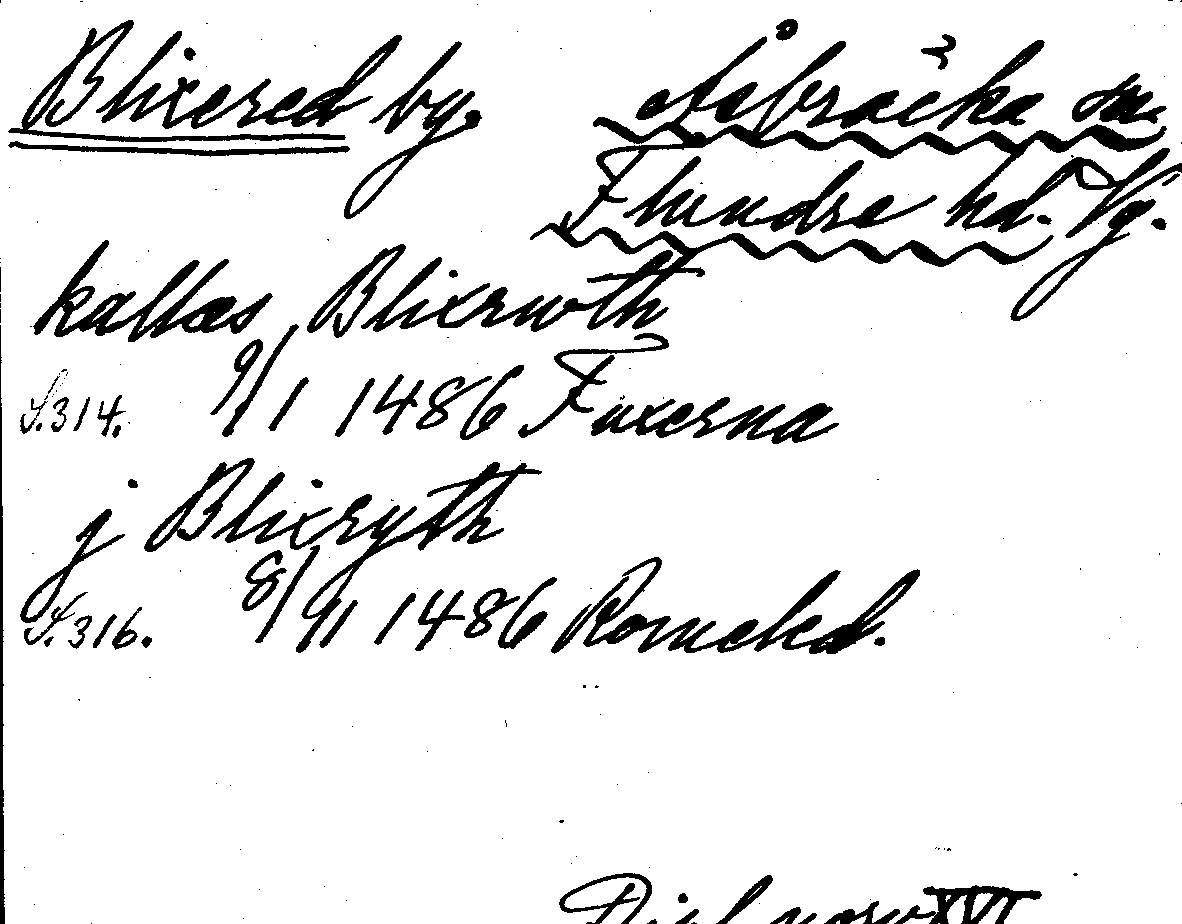 Blixered by. Åsbräcka sn.
Flundre hd. Vg.
kallas Blixrwth
S.314. 9/1 1486 Fuxerna
j Blixryth
S.316. 8/9 1486 Romeled.
Dipl. norv XVI